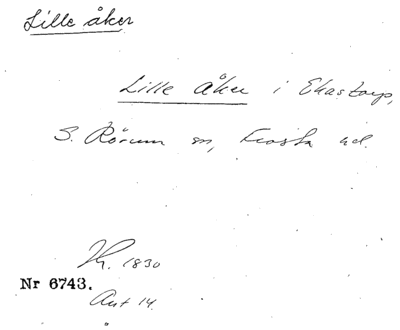 Lille åker
Lille åker i Ekastorp,
S. Rörum sn, Frosta hd.
1830
Nr 6743.
Avt 14.